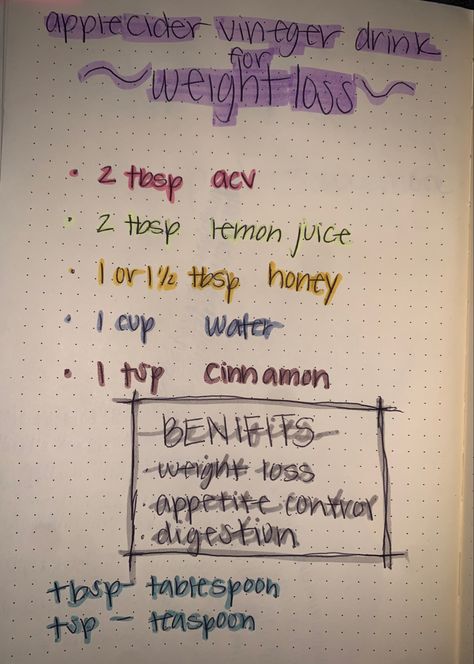 apple cider vineger drink
for
~ weight loss ~
• 2 tbsp acv
• 2 tbsp lemon juice
• 1 or 1 1/2 tbsp honey
• 1 cup water
• 1 tsp cinnamon
BENIFITS
- weight loss
- appetite control
- digestion
tbsp - tablespoon
tsp - teaspoon